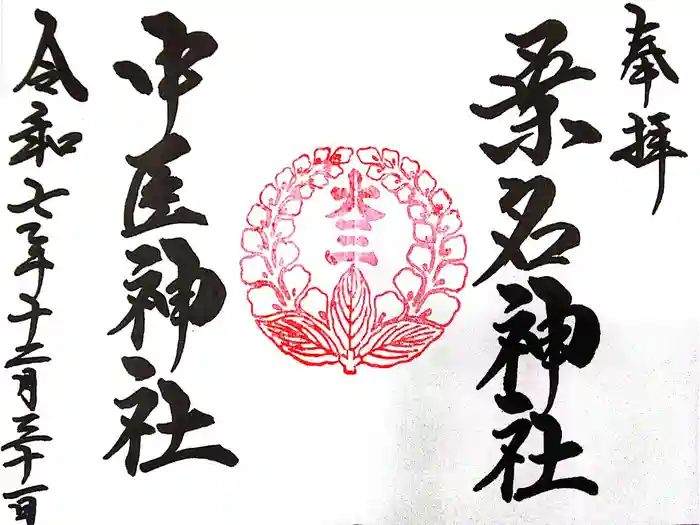 奉拝
桑名神社
大三
中臣神社
令和七年十二月三十一日